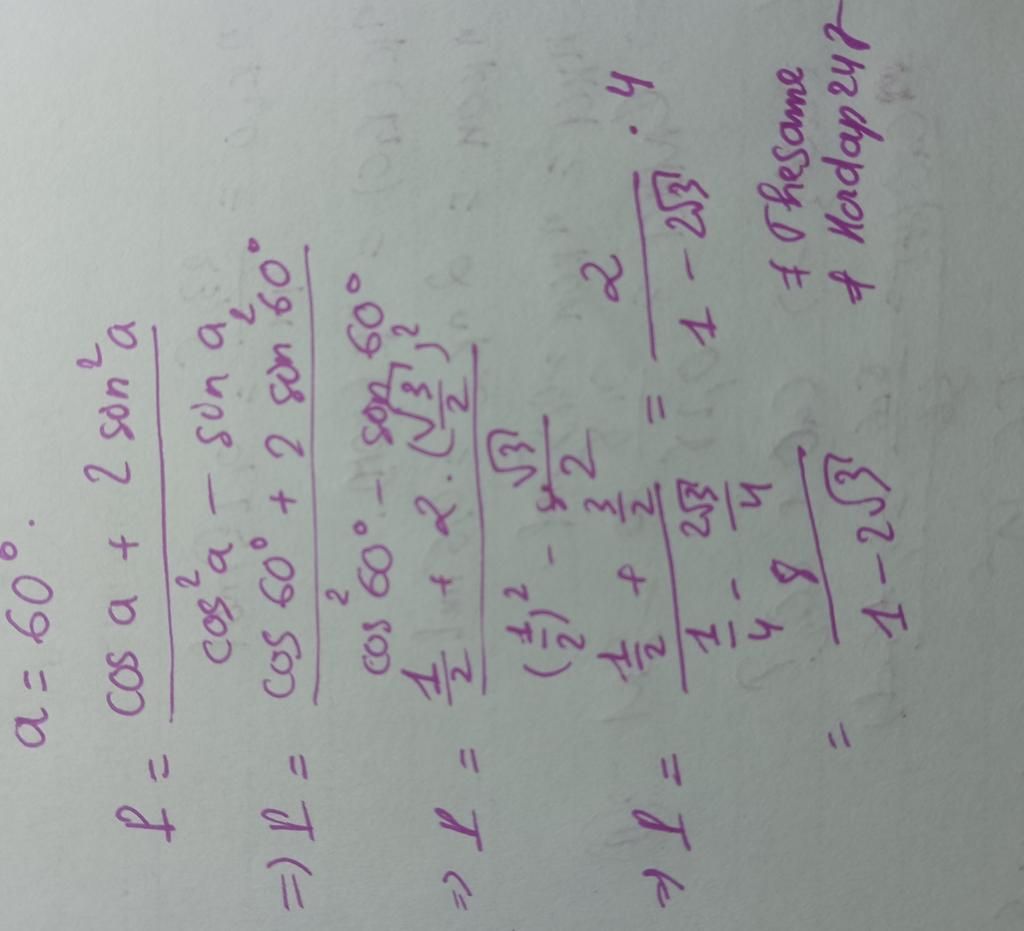 a = 60°.
P = (cos a + 2 sin² a) / (cos² a - sin a)
=> P = (cos 60° + 2 sin² 60°) / (cos² 60° - sin 60°)
=> P = (1/2 + 2 · (√3/2)²) / ((1/2)² - √3/2)
=> P = (1/2 + 3/2) / (1/4 - 2√3/4) = 2 / (1 - 2√3) · 4
= 8 / (1 - 2√3)
# Thesame
# Hordap247